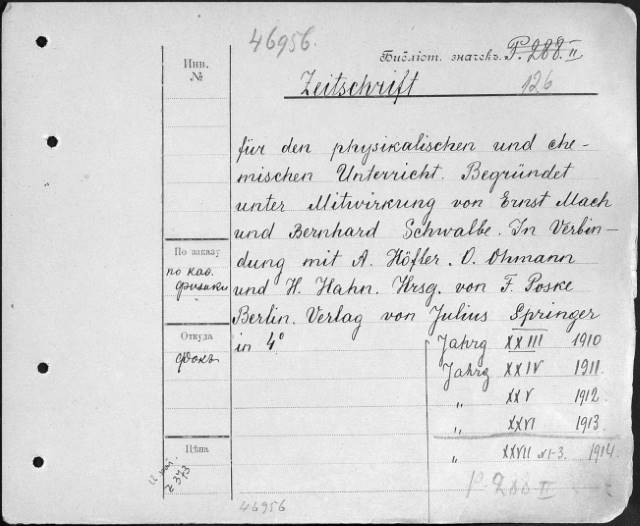 46956.
Инв.
№
Библіот. значекъ. P. 288. II
126
Zeitschrift
für den physikalischen und che-
mischen Unterricht. Begründet
unter Mitwirkung von Ernst Mach
und Bernhard Schwalbe. In Verbin-
dung mit A. Höfler. O. Ohmann
und H. Hahn. Hrsg. von F. Poske
Berlin. Verlag von Julius Springer
in 4°
По заказу
по каб.
физики
Откуда
фокъ
Цѣна
Jahrg XXIII 1910
Jahrg XXIV 1911.
„ XXV 1912.
„ XXVI 1913.
„ XXVII №1-3. 1914.
P 288 II
46956